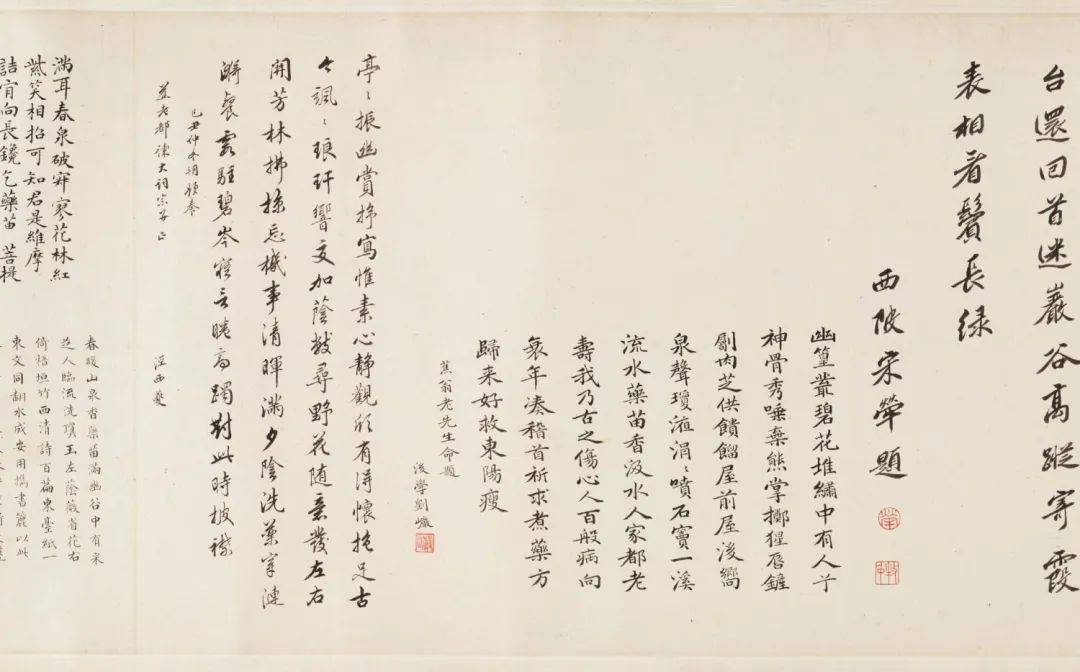 台還回首迷巖谷高蹤寄霞
表相看鬢長綠
西陂宋犖題
幽篁叢碧花堆繡中有人兮
神骨秀唾棄熊掌擲猩唇鏟
劚肉芝供饋餾屋前屋後嚮
泉聲瓊液涓〻噴石竇一溪
流水藥苗香汲水人家都老
壽我乃古之傷心人百般病向
衰年湊稽首祈求煮藥方
歸来好救東陽瘦
蕉翁老先生命題
後學劉巘
亭〻振幽賞抒寫惟素心靜觀
有得懷抱足古
今颯〻琅玕響交加蔭散尋野花随意發左右
開芳林拂
忘機事清暉滿夕陰洗藥
漣
雲駐碧岑寤言睎高躅對此時披襟
己丑仲冬
益老都諫大詞宗
正
滿耳春泉破寂寥花林紅
紫笑相招可知君是維摩
詰肯向長鑱乞藥苗 菩提
春暖山泉香藥苗滿幽谷中有采
芝人臨流洗瓊玉左蔭
花右
倚梧垣竹西清詩百篇東臺紙一
束文同翻水成安用攜書簏以此